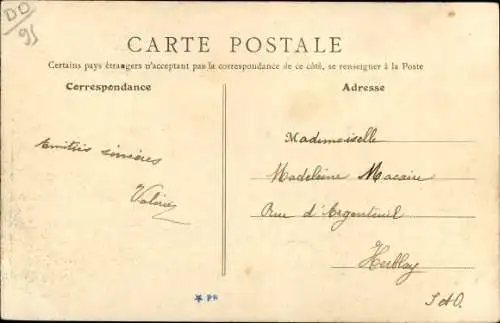 DD
95
CARTE POSTALE
Certains pays étrangers n'acceptant pas la correspondance de ce côté, se renseigner à la Poste
Correspondance
Adresse
Amitiés sincères
Valérie
Mademoiselle
Madeleine Macaire
Rue d'Argenteuil
Herblay
S et O.
PH